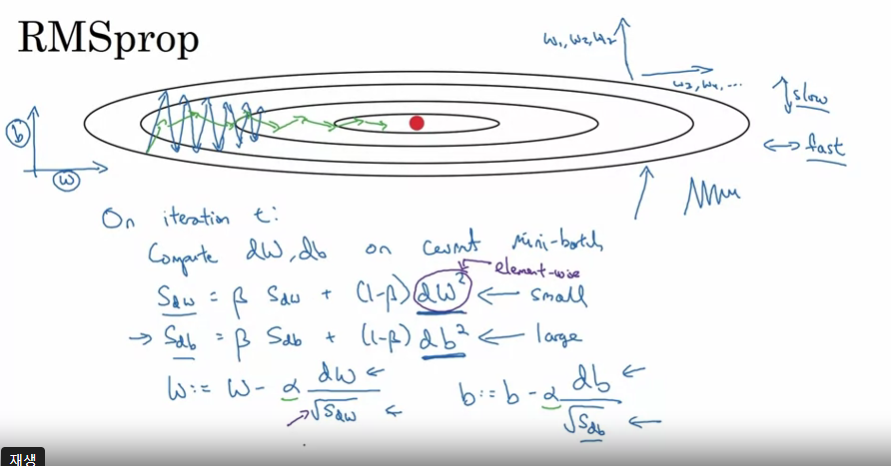 RMSprop
w₁, w₂, w₂
w₃, w₄, ...
slow
fast
b
w
On iteration t:
Compute dW, db on current mini-batch
element-wise
S_dw = β S_dw + (1-β) dW² ← small
→ S_db = β S_db + (1-β) db² ← large
W := W - α dW / √S_dw ← b := b - α db / √S_db ←
재생